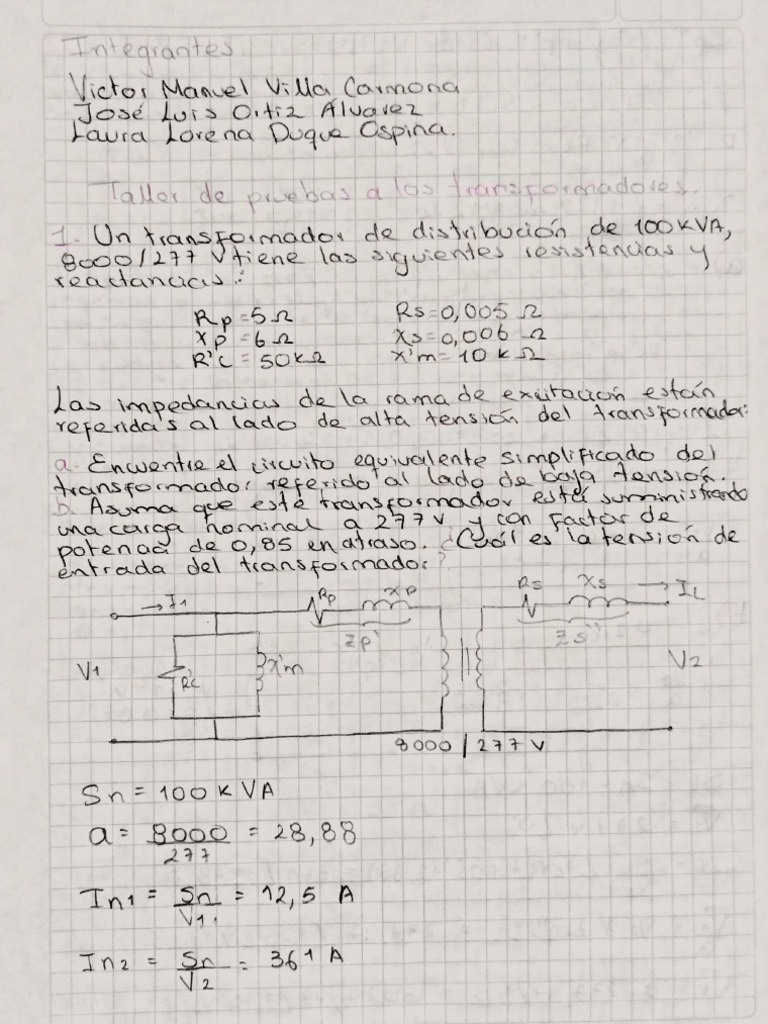 Integrantes
Victor Manuel Villa Carmona
José Luis Ortiz Álvarez
Laura Lorena Duque Ospina.
Taller de pruebas a los transformadores.
1. Un transformador de distribución de 100 KVA,
8000/277 V tiene las siguientes resistencias y
reactancias:
Rp = 5 Ω Rs = 0,005 Ω
Xp = 6 Ω Xs = 0,006 Ω
R'c = 50 k Ω X'm = 10 k Ω
Las impedancias de la rama de exitación están
referidas al lado de alta tensión del transformador:
a. Encuentre el circuito equivalente simplificado del
transformador referido al lado de baja tensión.
b. Asuma que este transformador está suministrando
una carga nominal a 277 V y con factor de
potencia de 0,85 en atraso. ¿Cuál es la tensión de
entrada del transformador?
I1 Rp Xp Rs Xs IL
Zp' Zs''
V1 R'c X'm V2
8000 / 277 V
Sn = 100 k VA
a = 8000 / 277 = 28,88
In1 = Sn / V1 = 12,5 A
In2 = Sn / V2 = 361 A